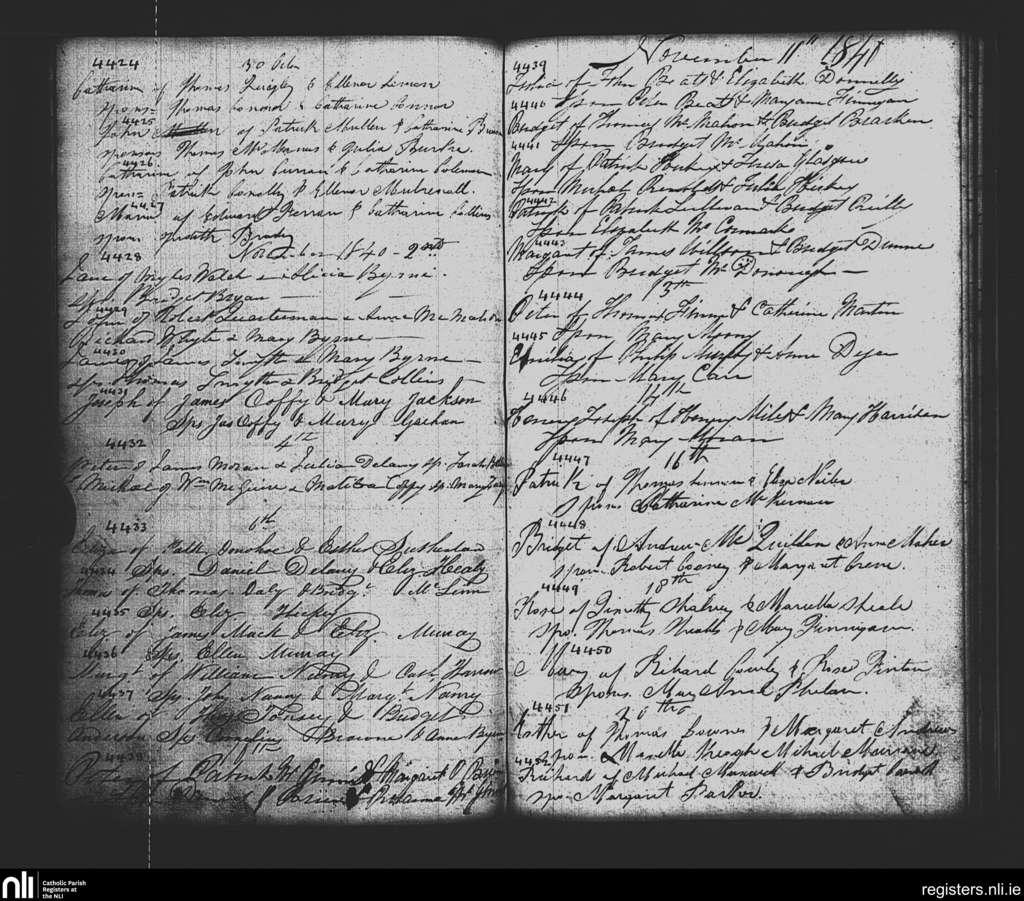 4424 30 Octr
Catharine of Thomas Quigley & Ellenor
spons Thomas Connor & Catharine Connor
4425
John of Patrick Mullen & Catharine
sponsors Thomas McManus & Julia Burke.
4426
Catharine of John Curran & Catharine Coleman
spon: Patrick Connolly & Ellenor Mulrenall.
4427
Maria of Edward Fierran & Catharine Collins
spon Judith Brady
4428 Novber 1840 - 2nd
Jane of Myles Walsh & Alicia Byrne.
Sps. Bridget Bryan
4429
John of Robert Quarterman & Anne McMahon
Richard Whyte & Mary Byrne
4430
of James Smyth & Mary Byrne
Sps Thomas Smyth & Bridget Collins
4431
Joseph of James Coffy & Mary Jackson
Sps Jas Coffy & Mary Gachan
4432 4th
Peter of James Moran & Julia Delany sp. Sarah
Michael of Wm McGuire & Matilda Coffy sp. Mary
4433 6th
Eliza of Patk Donohoe & Esther Sutherland
4434 Sps. Daniel Delany & Eliz Healy
Thomas of Thomas Daly & Bridgt McLinn
4435 Sps. Eliz Hickey
Eliz of James Mack & Eliz. Murray
4436 Sps. Ellen Murray
Margt of William Nanny & Cath Harrow
4437 Sps. John Nanny & Margt Nanry
Ellen of Hugh & Bridget
Anderson Sps Cornelius Browne & Anne Byrne
4438 11th
Peter of Patrick McGinnis & Margaret
November 11th 1840
4439
of John Beat & Elizabeth Donnelly
4440 Spon Peter Beat & Maryanne Finnegan
Bridget of Thomas McMahon & Bridget Bracken
4441 Spon Bridget McMahon
Mary of Patrick Hickey & Teresa Glasgow
Spon Michael Reynolds & Julia Hickey
4442
Patrick of Patrick Sullivan & Bridget Reilly
Spon Elizabeth McCormack
4443
Margaret of James Wilson & Bridget Dunne
Spon Bridget McDonough
4444 13th
Peter of Thomas Finney & Catherine Martin
4445 Spon Mary Moony
Emilia of Philip Murphy & Anne Dejean
Spon Mary Carr
4446 14th
Henry Joseph of Henry Miles & Mary Harrison
Spon Mary Moran
4447 16th
Patrick of Thomas & Eliza Neilen
spons Catharine McKernan
4448
Bridget of Andrew McQuillan & Anne Maher
spon. Robert Cooney & Margaret Creve.
4449 18th
Rose of Timothy Shalvey & Mariella Sheals
Spo. Thomas Sheals & Mary Finnigan.
4450
Mary of Richard Gourly & Rose Finton
Spons. Mary Anne Phelan.
4451 20th
Esther of Thomas Downes & Margaret Andrews
4452 spon. Manella Keogh & Michael
Richard of Michael Maxwell & Bridget
spo Margaret Parker.
nli
Catholic Parish
Registers at
the NLI
registers.nli.ie